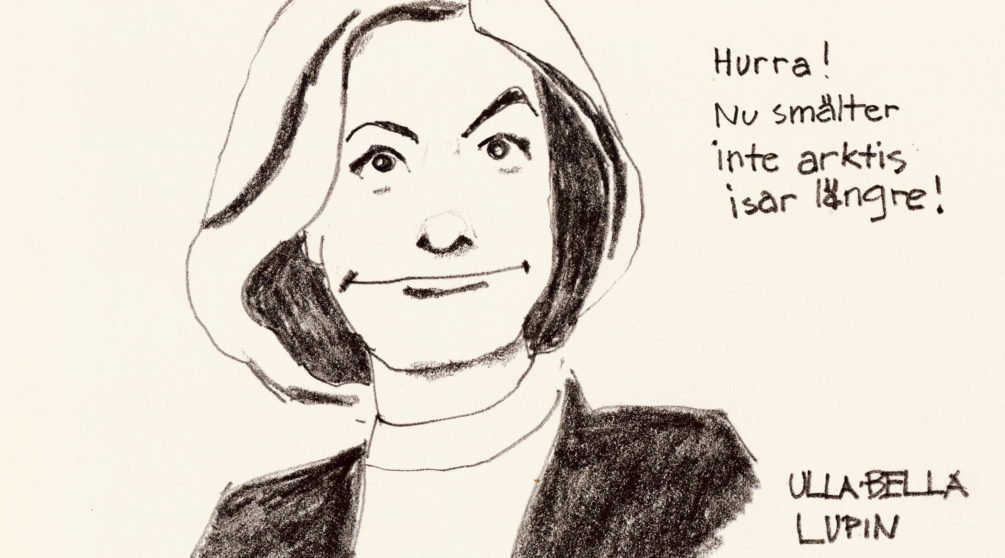 Hurra!
Nu smälter
inte arktis
isar längre!
ULLA-BELLA
LUPIN